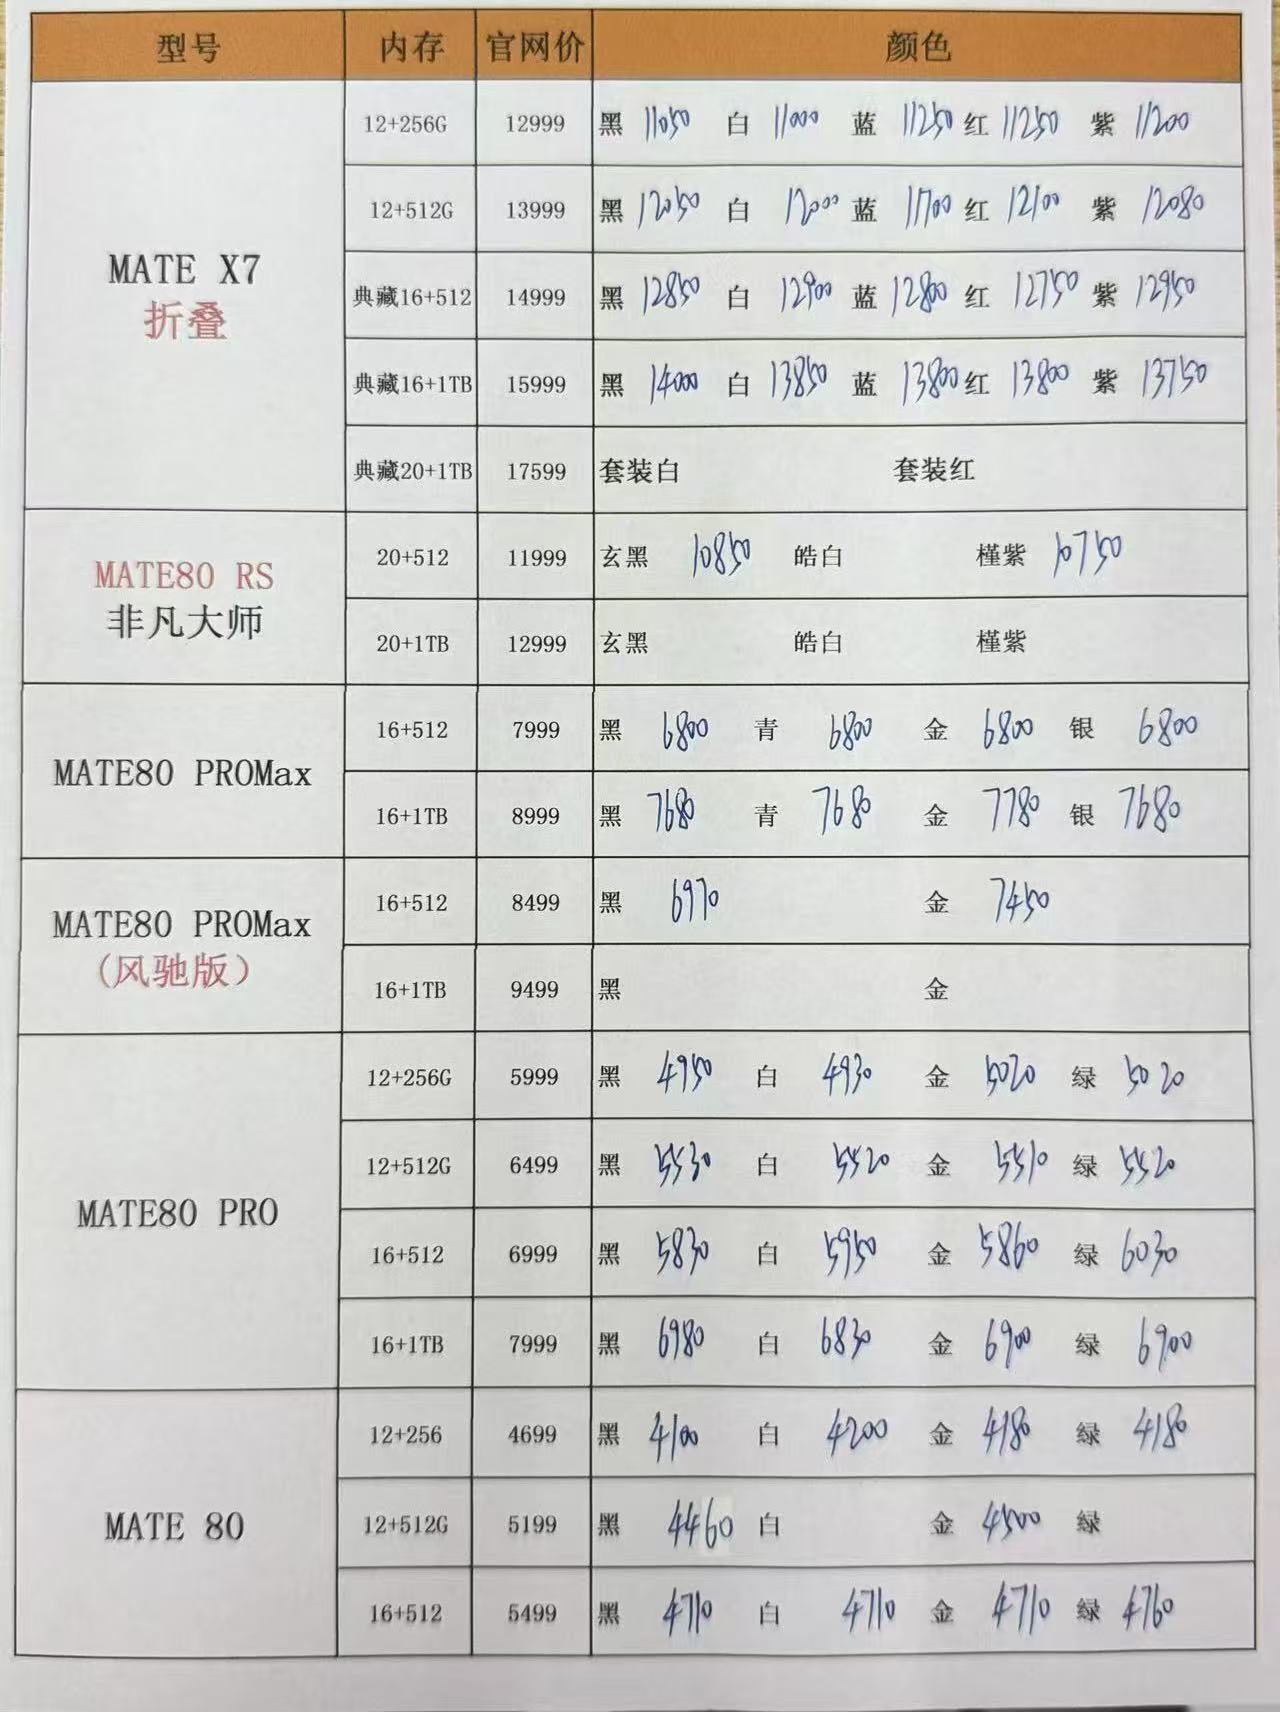 型号 内存 官网价 颜色
12+256G 12999 黑 11050 白 11000 蓝 11250 红 11250 紫 11200
12+512G 13999 黑 12050 白 12000 蓝 11700 红 12100 紫 12080
MATE X7
折叠
典藏16+512 14999 黑 12850 白 12900 蓝 12800 红 12750 紫 12950
典藏16+1TB 15999 黑 14000 白 13850 蓝 13800 红 13800 紫 13750
典藏20+1TB 17599 套装白 套装红
MATE80 RS
非凡大师
20+512 11999 玄黑 10850 皓白 槿紫 10750
20+1TB 12999 玄黑 皓白 槿紫
MATE80 PROMax
16+512 7999 黑 6800 青 6800 金 6800 银 6800
16+1TB 8999 黑 7680 青 7680 金 7780 银 7680
MATE80 PROMax
(风驰版)
16+512 8499 黑 6970 金 7450
16+1TB 9499 黑 金
MATE80 PRO
12+256G 5999 黑 4950 白 4930 金 5020 绿 5020
12+512G 6499 黑 5530 白 5520 金 5510 绿 5520
16+512 6999 黑 5830 白 5950 金 5860 绿 6030
16+1TB 7999 黑 6980 白 6830 金 6900 绿 6900
MATE 80
12+256 4699 黑 4100 白 4200 金 4180 绿 4180
12+512G 5199 黑 4460 白 金 4500 绿
16+512 5499 黑 4710 白 4710 金 4710 绿 4760